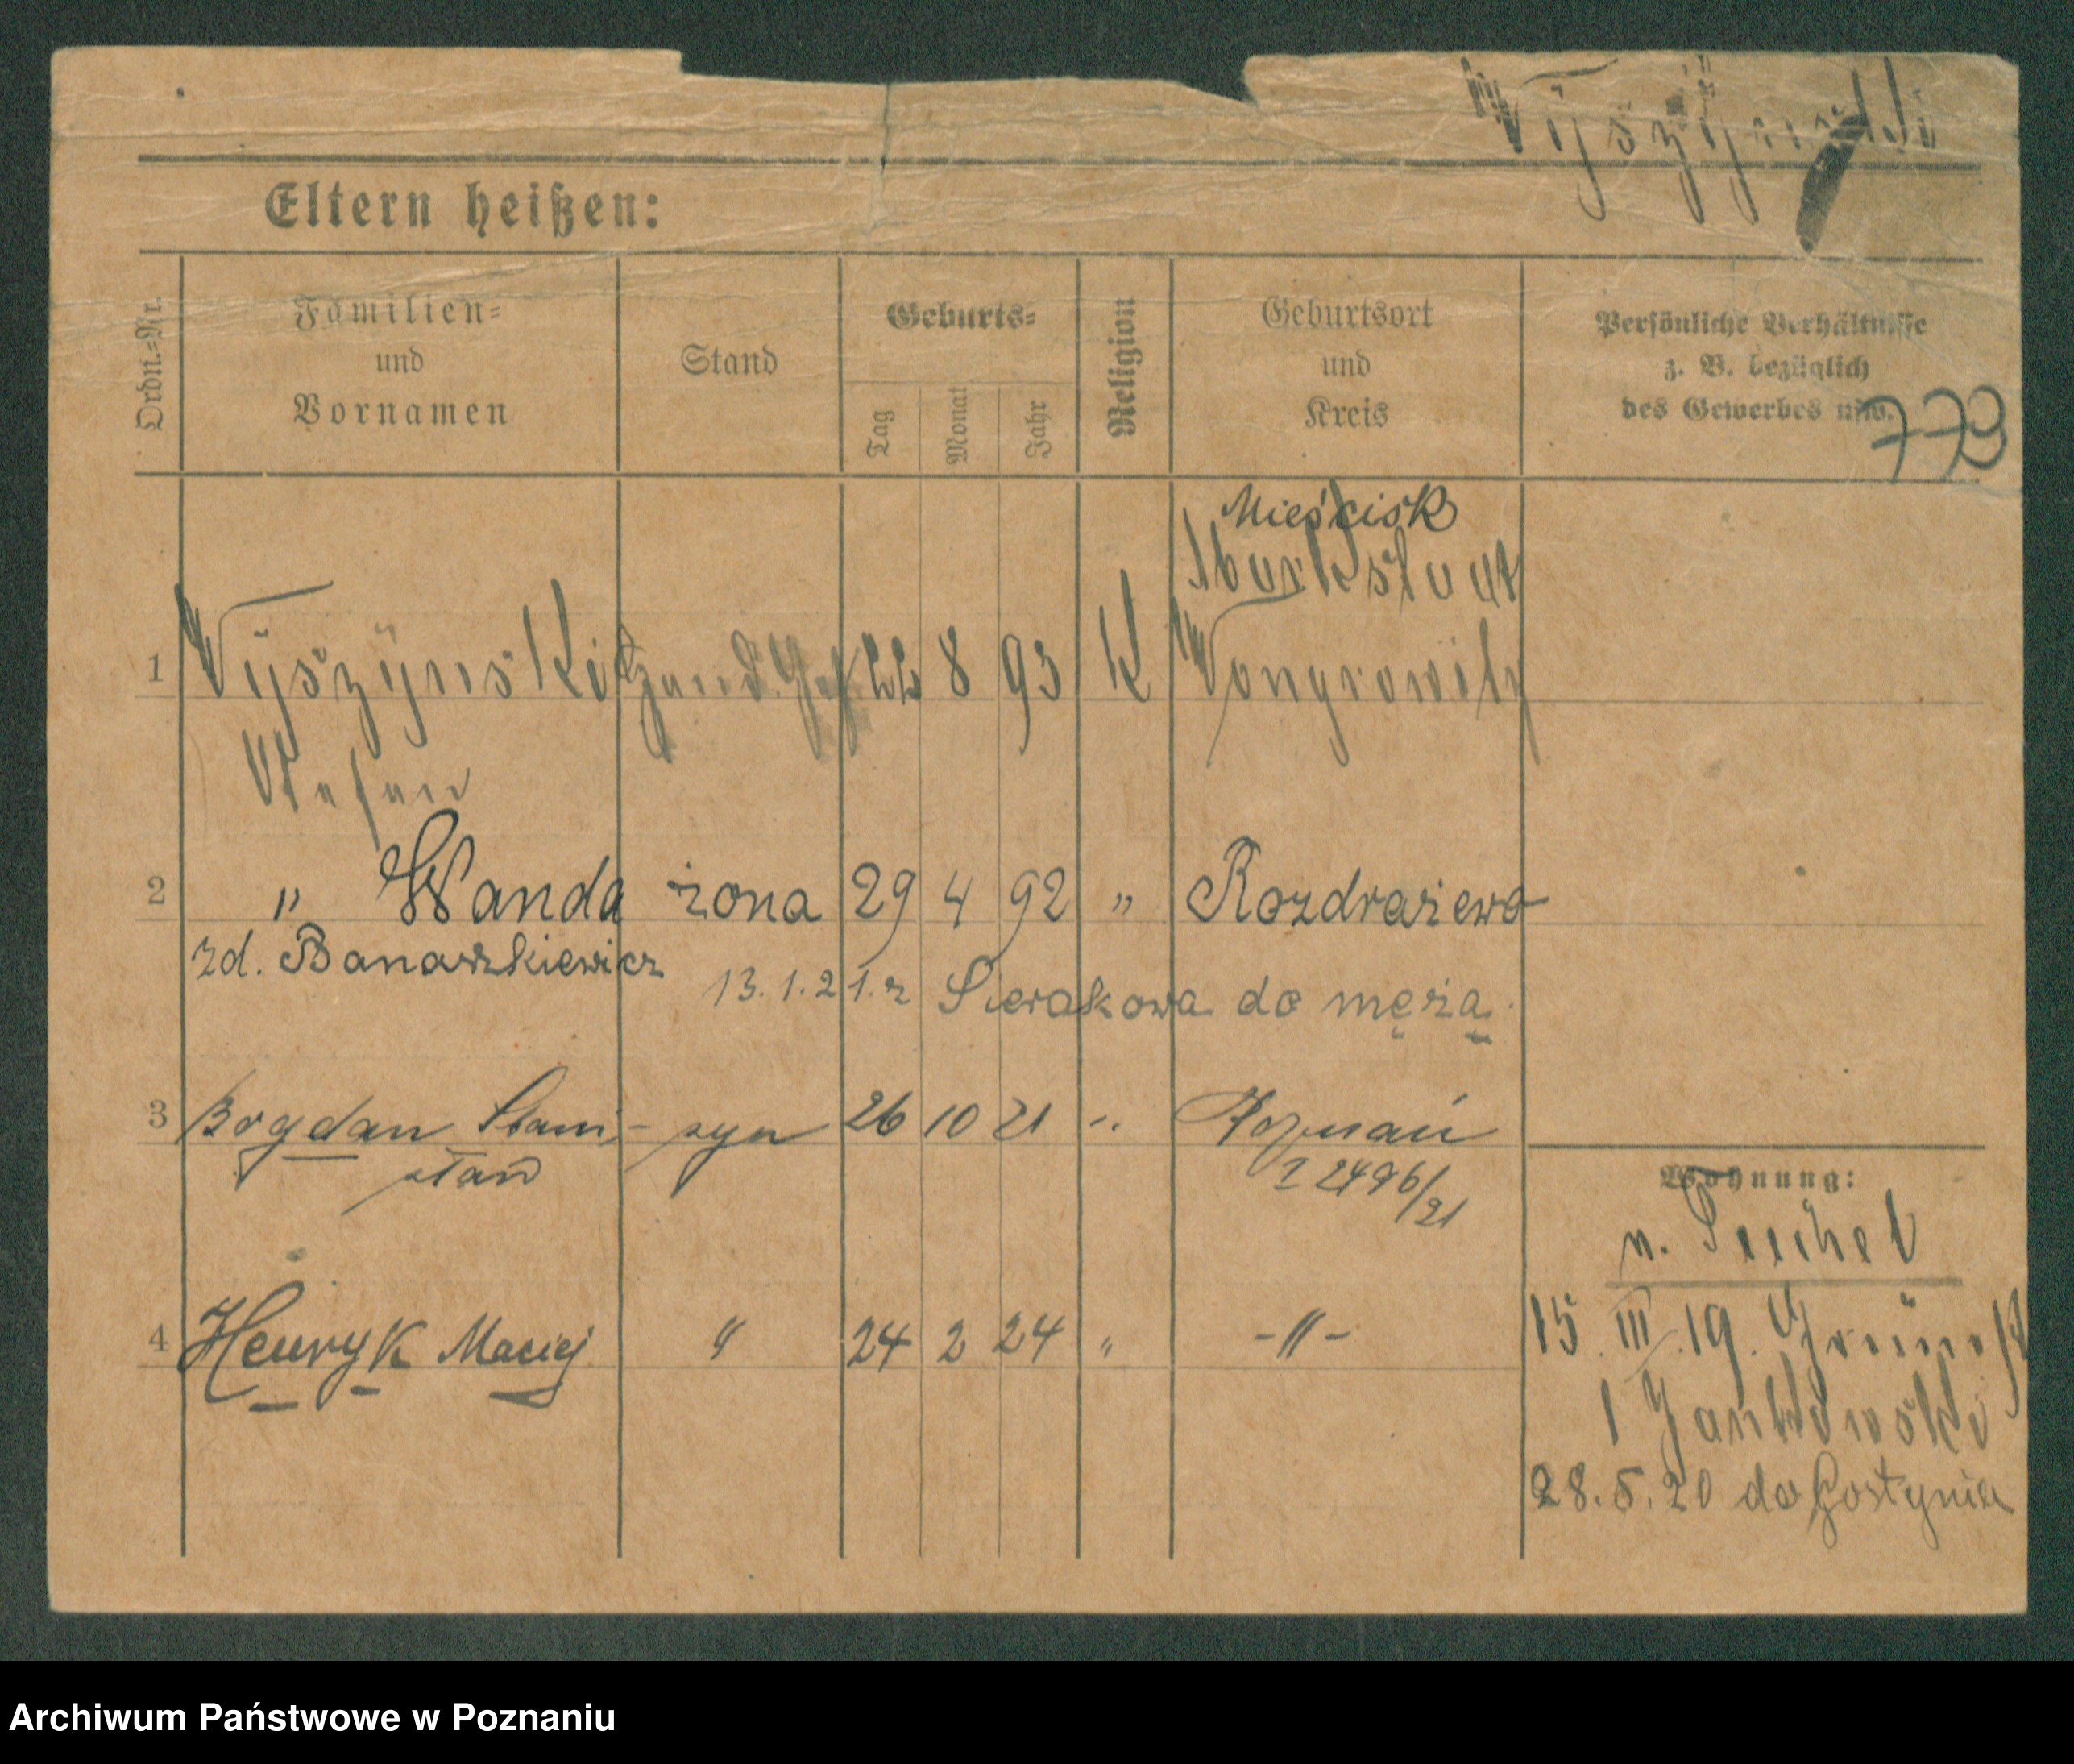 Wyszynski
Eltern heißen:
Ordn.-Nr.
Familien-
und
Vornamen
Stand
Geburts-
Tag
Monat
Jahr
Religion
Geburtsort
und
Kreis
Persönliche Verhältnisse
z. B. bezüglich
des Gewerbes usw.
779
Mieścisk
Markstadt
1 Wyszynski 22 8 93 K Wongrowitz
Stefan
2 " Wanda żona 29 4 92 " Rozdrażewo
zd. Banaszkiewicz
13.1.21. z Sierakowa do męża.
3 Bogdan Stani- syn 26 10 21 " Poznań
sław
I 2496/21
Wohnung:
4 Henryk Maciej " 24 2 24 " -"-
15. III. 19.
Jankowski
28.5.20 do Gostynia
Archiwum Państwowe w Poznaniu